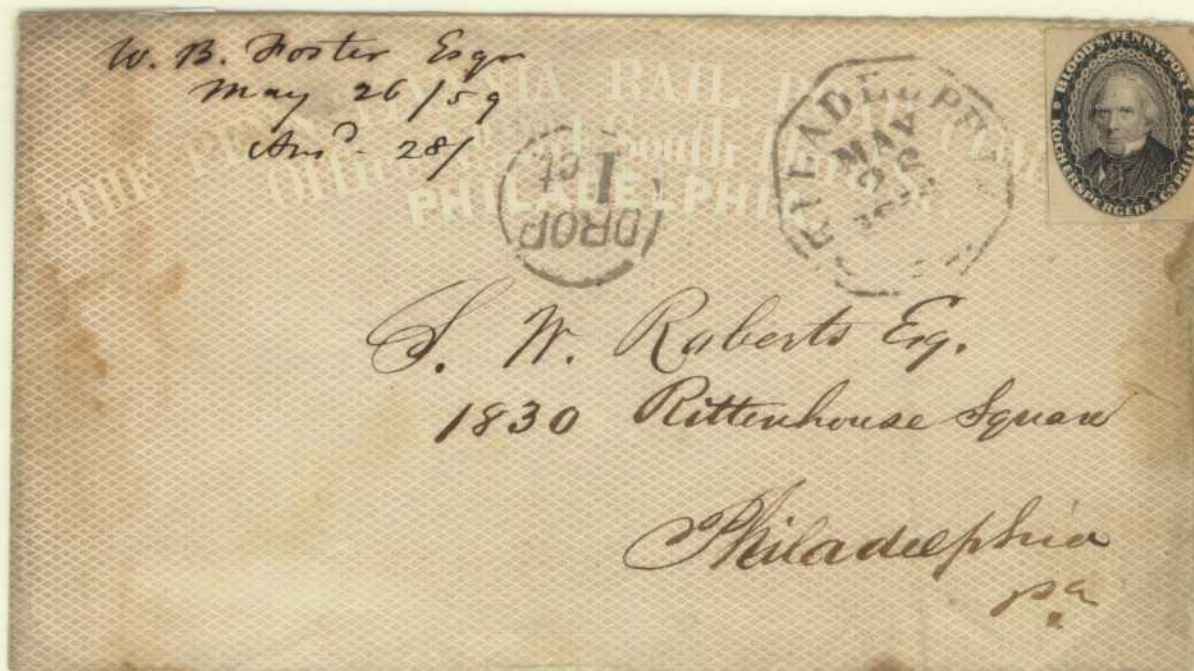 W. B. Foster Esqr
May 26/59
Ansd. 28/
THE PENNSYLVANIA RAIL ROAD
Office South Third
PHILADELPHIA
DROP
1 ct
PHILADELPHIA
MAY
26
BLOOD'S PENNY POST
KOCHERSPERGER & CO. PHILADA.
S. W. Roberts Esq.
1830 Rittenhouse Square
Philadelphia
pa